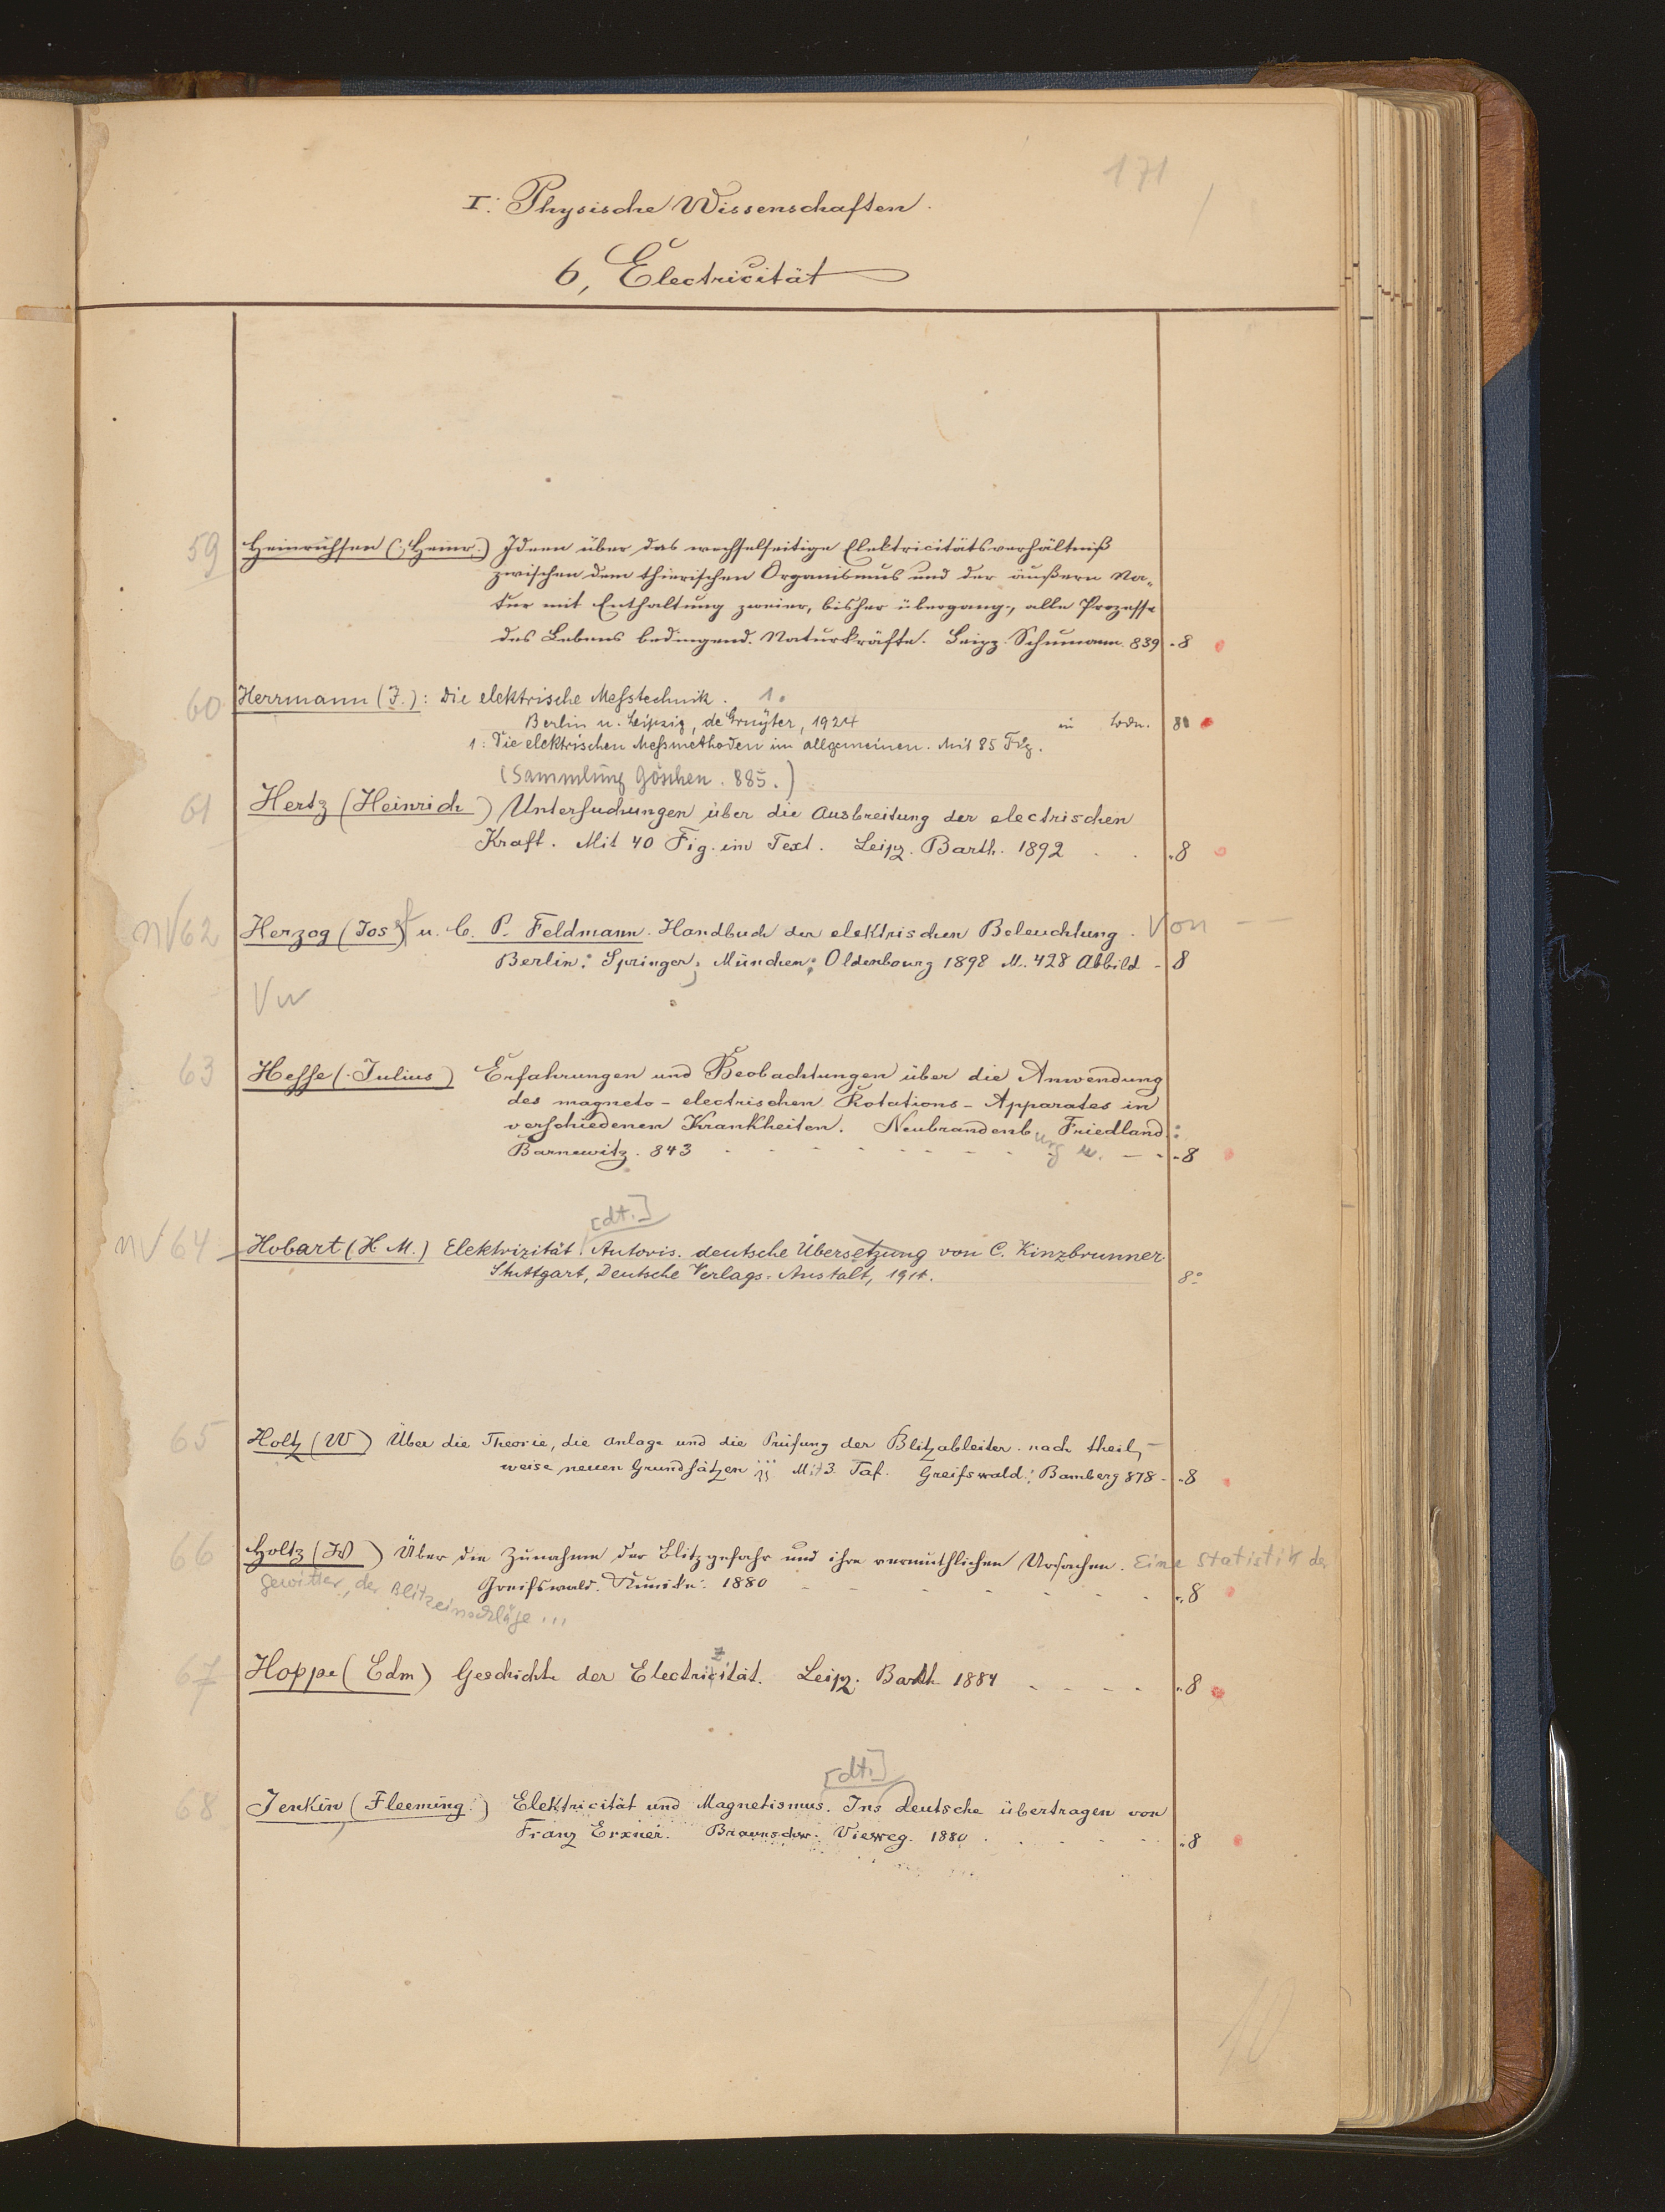 171
I. Physische Wissenschaften.
6, Electricität
59 Heinrichsen (Heinr.) Ideen über das wechselseitige Elektricitätsverhältniß
zwischen dem thierischen Organismus und der äußern Na-
tur mit Enthaltung zweier, bisher übergang., alle Prozesse
des Lebens bedingend. Naturkräfte. Leipz. Schumann. 839 . 8
60 Herrmann (J.): Die elektrische Messtechnik. 1.
Berlin u. Leipzig, de Gruyter, 1924 in Lwdn. 8
1: Die elektrischen Messmethoden im allgemeinen. Mit 85 Fig.
(Sammlung Göschen. 885.)
61 Hertz (Heinrich) Untersuchungen über die Ausbreitung der electrischen
Kraft. Mit 40 Fig. im Text. Leipz. Barth. 1892 . . . 8
nV 62 Herzog (Josef) u. C. P. Feldmann. Handbuch der elektrischen Beleuchtung. Von —
Berlin: Springer; München: Oldenbourg 1898 M. 428 Abbild - 8
63 Hesse (Julius) Erfahrungen und Beobachtungen über die Anwendung
des magneto-electrischen Rotations-Apparates in
verschiedenen Krankheiten. Neubrandenburg u. Friedland:
Barnewitz. 843 - 8
[dt.]
nV 64 Hobart (H. M.) Elektrizität. Autoris. deutsche Übersetzung von C. Kinzbrunner.
Stuttgart, Deutsche Verlags-Anstalt, 1911. 8°
65 Holtz (W) Über die Theorie, die Anlage und die Prüfung der Blitzableiter nach theil-
weise neuen Grundsätzen ... Mit 3 Taf. Greifswald: Bamberg 878 - 8
66 Holtz (W) Über die Zunahme der Blitzgefahr und ihre vermuthlichen Ursachen. Eine Statistik der
Gewitter, der Blitzeinschläge ... Greifswald. Kunike. 1880 . 8
67 Hoppe (Edm) Geschichte der Electricität. Leipz. Barth 1884 . . . . 8
z
[dt.]
68 Jenkin (Fleeming) Elektricität und Magnetismus. Ins deutsche übertragen von
Franz Exner. Braunschw. Vieweg. 1880 . . . . 8
10